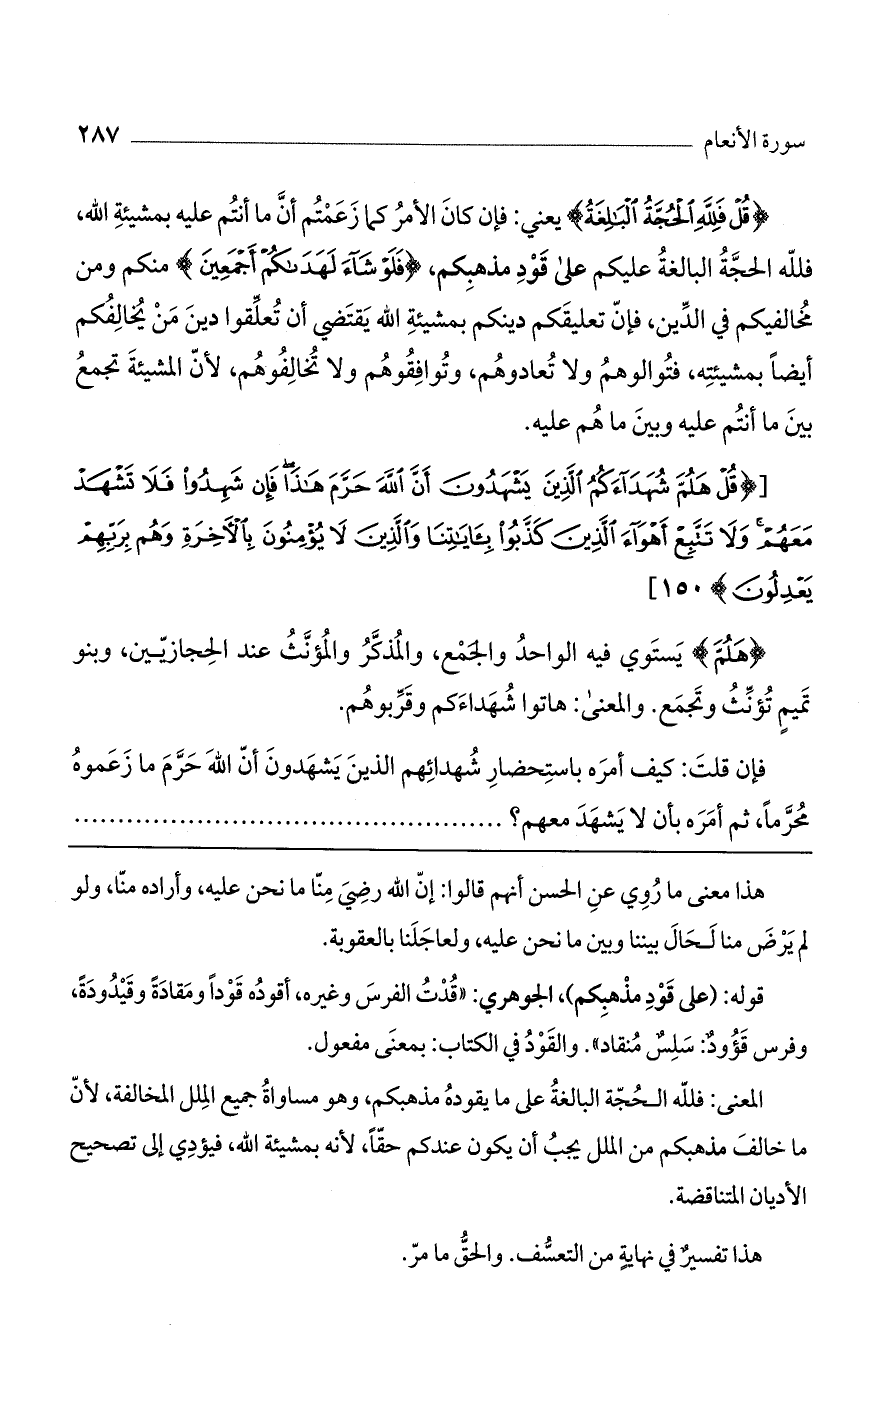 سورة الأنعام ٢٨٧
﴿قُلْ فَلِلَّهِ ٱلْحُجَّةُ ٱلْبَٰلِغَةُ﴾ يعني: فإن كانَ الأمرُ كما زَعَمْتُم أنَّ ما أنتُم عليه بمشيئةِ الله،
فللّه الحجَّةُ البالغةُ عليكم علىٰ قَوْدِ مذهبِكم، ﴿فَلَوْ شَآءَ لَهَدَىٰكُمْ أَجْمَعِينَ﴾ منكم ومن
مُخالفيكم في الدِّين، فإنّ تعليقَكم دينكم بمشيئةِ الله يَقتَضي أن تُعلِّقوا دينَ مَنْ يُخالِفُكم
أيضاً بمشيئتِه، فتُوالوهمُ ولا تُعادوهُم، وتُوافِقُوهُم ولا تُخالِفُوهُم، لأنّ المشيئةَ تجمعُ
بينَ ما أنتُم عليه وبينَ ما هُم عليه.
[﴿قُلْ هَلُمَّ شُهَدَآءَكُمُ ٱلَّذِينَ يَشْهَدُونَ أَنَّ ٱللَّهَ حَرَّمَ هَٰذَا ۖ فَإِن شَهِدُوا۟ فَلَا تَشْهَدْ
مَعَهُمْ ۚ وَلَا تَتَّبِعْ أَهْوَآءَ ٱلَّذِينَ كَذَّبُوا۟ بِـَٔايَٰتِنَا وَٱلَّذِينَ لَا يُؤْمِنُونَ بِٱلْـَٔاخِرَةِ وَهُم بِرَبِّهِمْ
يَعْدِلُونَ﴾ ١٥٠]
﴿هَلُمَّ﴾ يَستَوي فيه الواحدُ والجَمْع، والمُذكَّرُ والمُؤنَّثُ عند الحِجازيّين، وبنو
تَميمٍ تُؤنِّثُ وتَجمَع. والمعنىٰ: هاتوا شُهَداءَكم وقَرِّبوهُم.
فإن قلتَ: كيف أمرَه باستِحضارِ شُهدائِهم الذينَ يَشهَدونَ أنّ اللهَ حَرَّمَ ما زَعَموهُ
مُحرَّماً، ثم أمَرَه بأن لا يَشهَدَ معهم؟ ................................................
هذا معنى ما رُوِي عنِ الحسن أنهم قالوا: إنّ الله رضِيَ مِنّا ما نحن عليه، وأراده منّا، ولو
لم يَرْضَ منا لَحَالَ بيننا وبين ما نحن عليه، ولعاجَلَنا بالعقوبة.
قوله: (على قَوْدِ مذْهبِكم)، الجوهري: «قُدْتُ الفرسَ وغيره، أقودُه قَوْداً ومَقادَةً وقَيْدُودَةً،
وفرس قَؤُودٌ: سَلِسٌ مُنقاد». والقَوْدُ في الكتاب: بمعنَى مفعول.
المعنى: فللّه الحُجّة البالغةُ على ما يقودهُ مذهبكم، وهو مساواةُ جميع المِلل المخالفة، لأنّ
ما خالفَ مذهبكم من الملل يجبُ أن يكون عندكم حقّاً، لأنه بمشيئة الله، فيؤدِي إلى تصحيح
الأديان المتناقضة.
هذا تفسيرٌ في نهايةٍ من التعسُّف. والحقُّ ما مرّ.